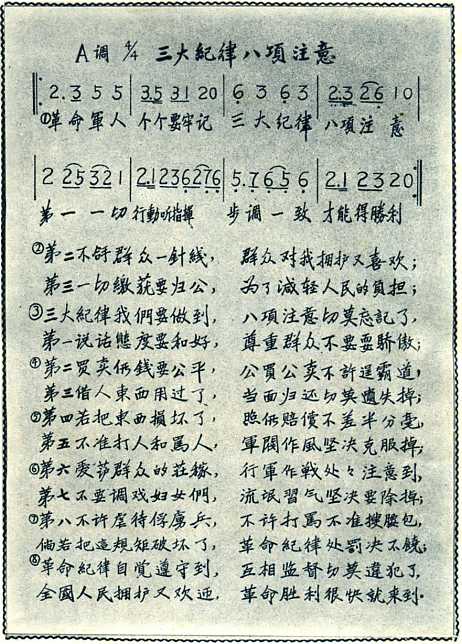 A调 4/4 三大紀律八項注意
2.3 5 5 3.5 31 20 6 3 6 3 2.3 26 10
①革命軍人 个个要牢记 三大纪律 八項注意
2 25321 2.123 6276 5.7 6 5 6 2.1 2320
第一一切 行動听指揮 步调一致 才能得勝利
②第二不舒群众一針綫， 群众对我拥护又喜欢；
第三一切繳获要归公， 为了减轻人民的負担；
③三大紀律我們要做到， 八項注意切莫忘記了，
第一说话態度要和好， 尊重群众不要耍骄傲；
④第二買卖価錢要公平， 公買公卖不許逞霸道，
第三借人東西用过了， 当面归还切莫遺失掉；
⑤第四若把東西損坏了， 照価賠償不差半分毫，
第五不准打人和罵人， 軍閥作風坚决克服掉；
⑥第六爱护群众的莊稼， 行軍作战处々注意到，
第七不要调戏妇女們， 流氓習气坚决要除掉；
⑦第八不许虐待俘虜兵， 不许打罵不准搜腰包，
倘若把這规矩破坏了， 革命紀律处罰决不饒；
⑧革命紀律自觉遵守到， 互相监督切莫違犯了，
全國人民拥护又欢迎， 革命胜利很快就来到.